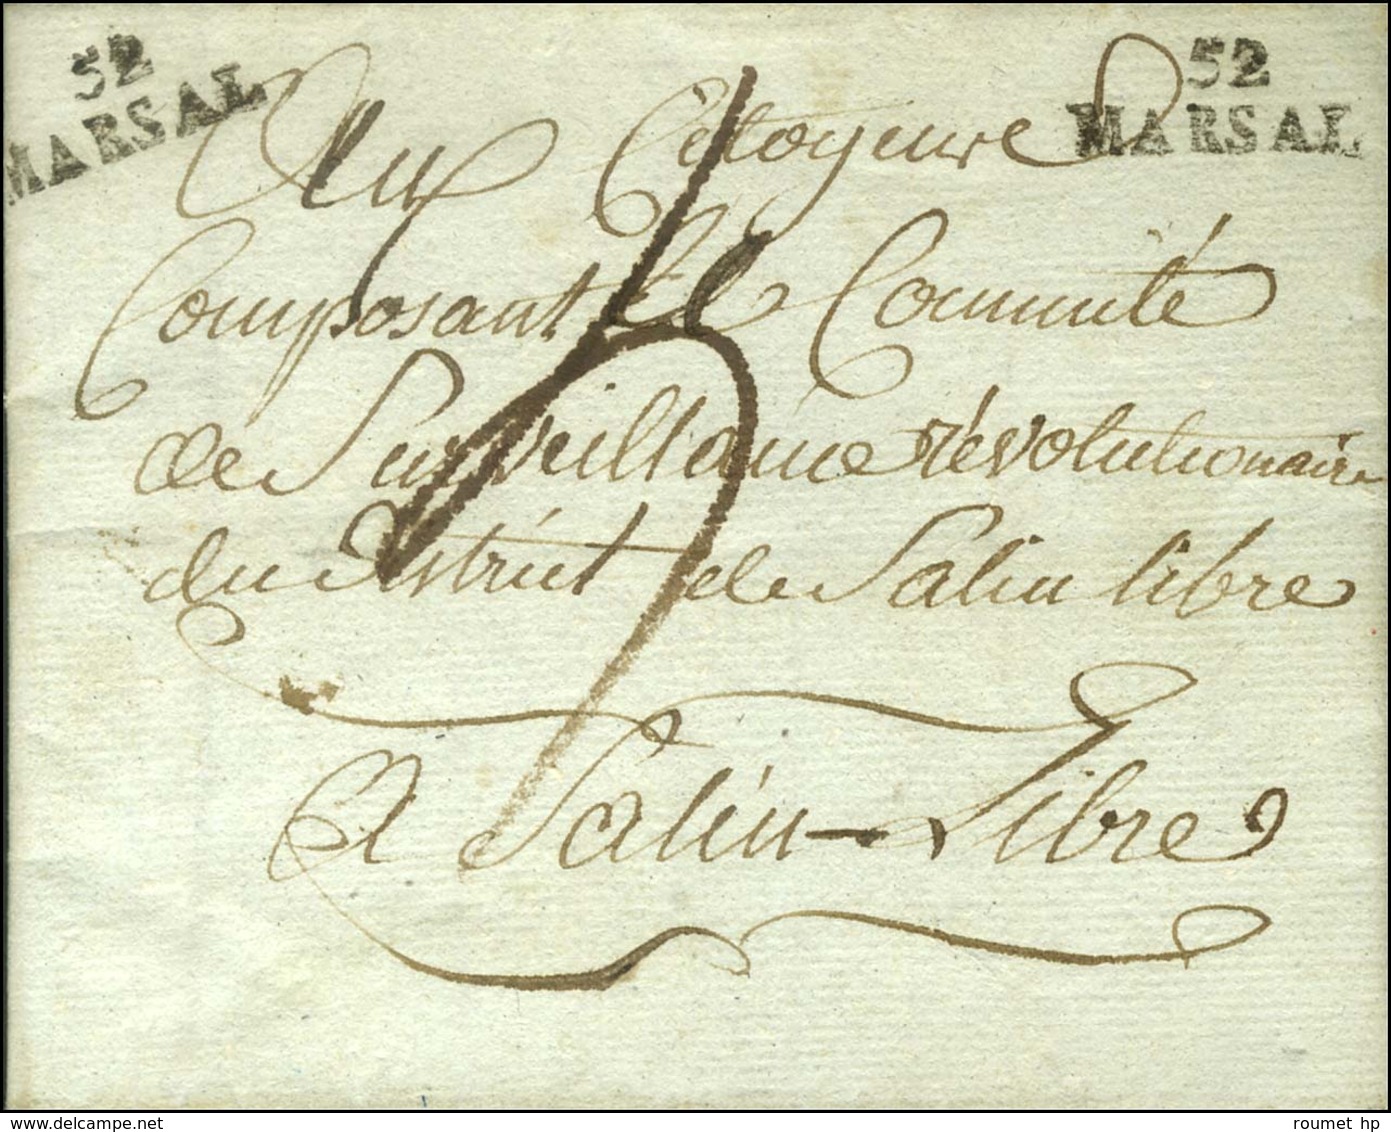 52
MARSAL
52
MARSAL
Aux Citoyens
Composant le Committé
de Surveillance révolutionaire
du District de Salin libre
A Salin-Libre
www.delcampe.net
roumet hp